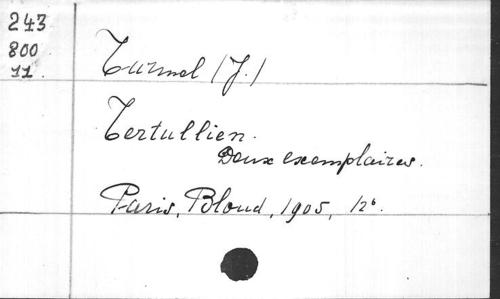 243
800
11.
Turmel (J.)
Tertullien.
Deux exemplaires.
Paris, Bloud, 1905, 12º.